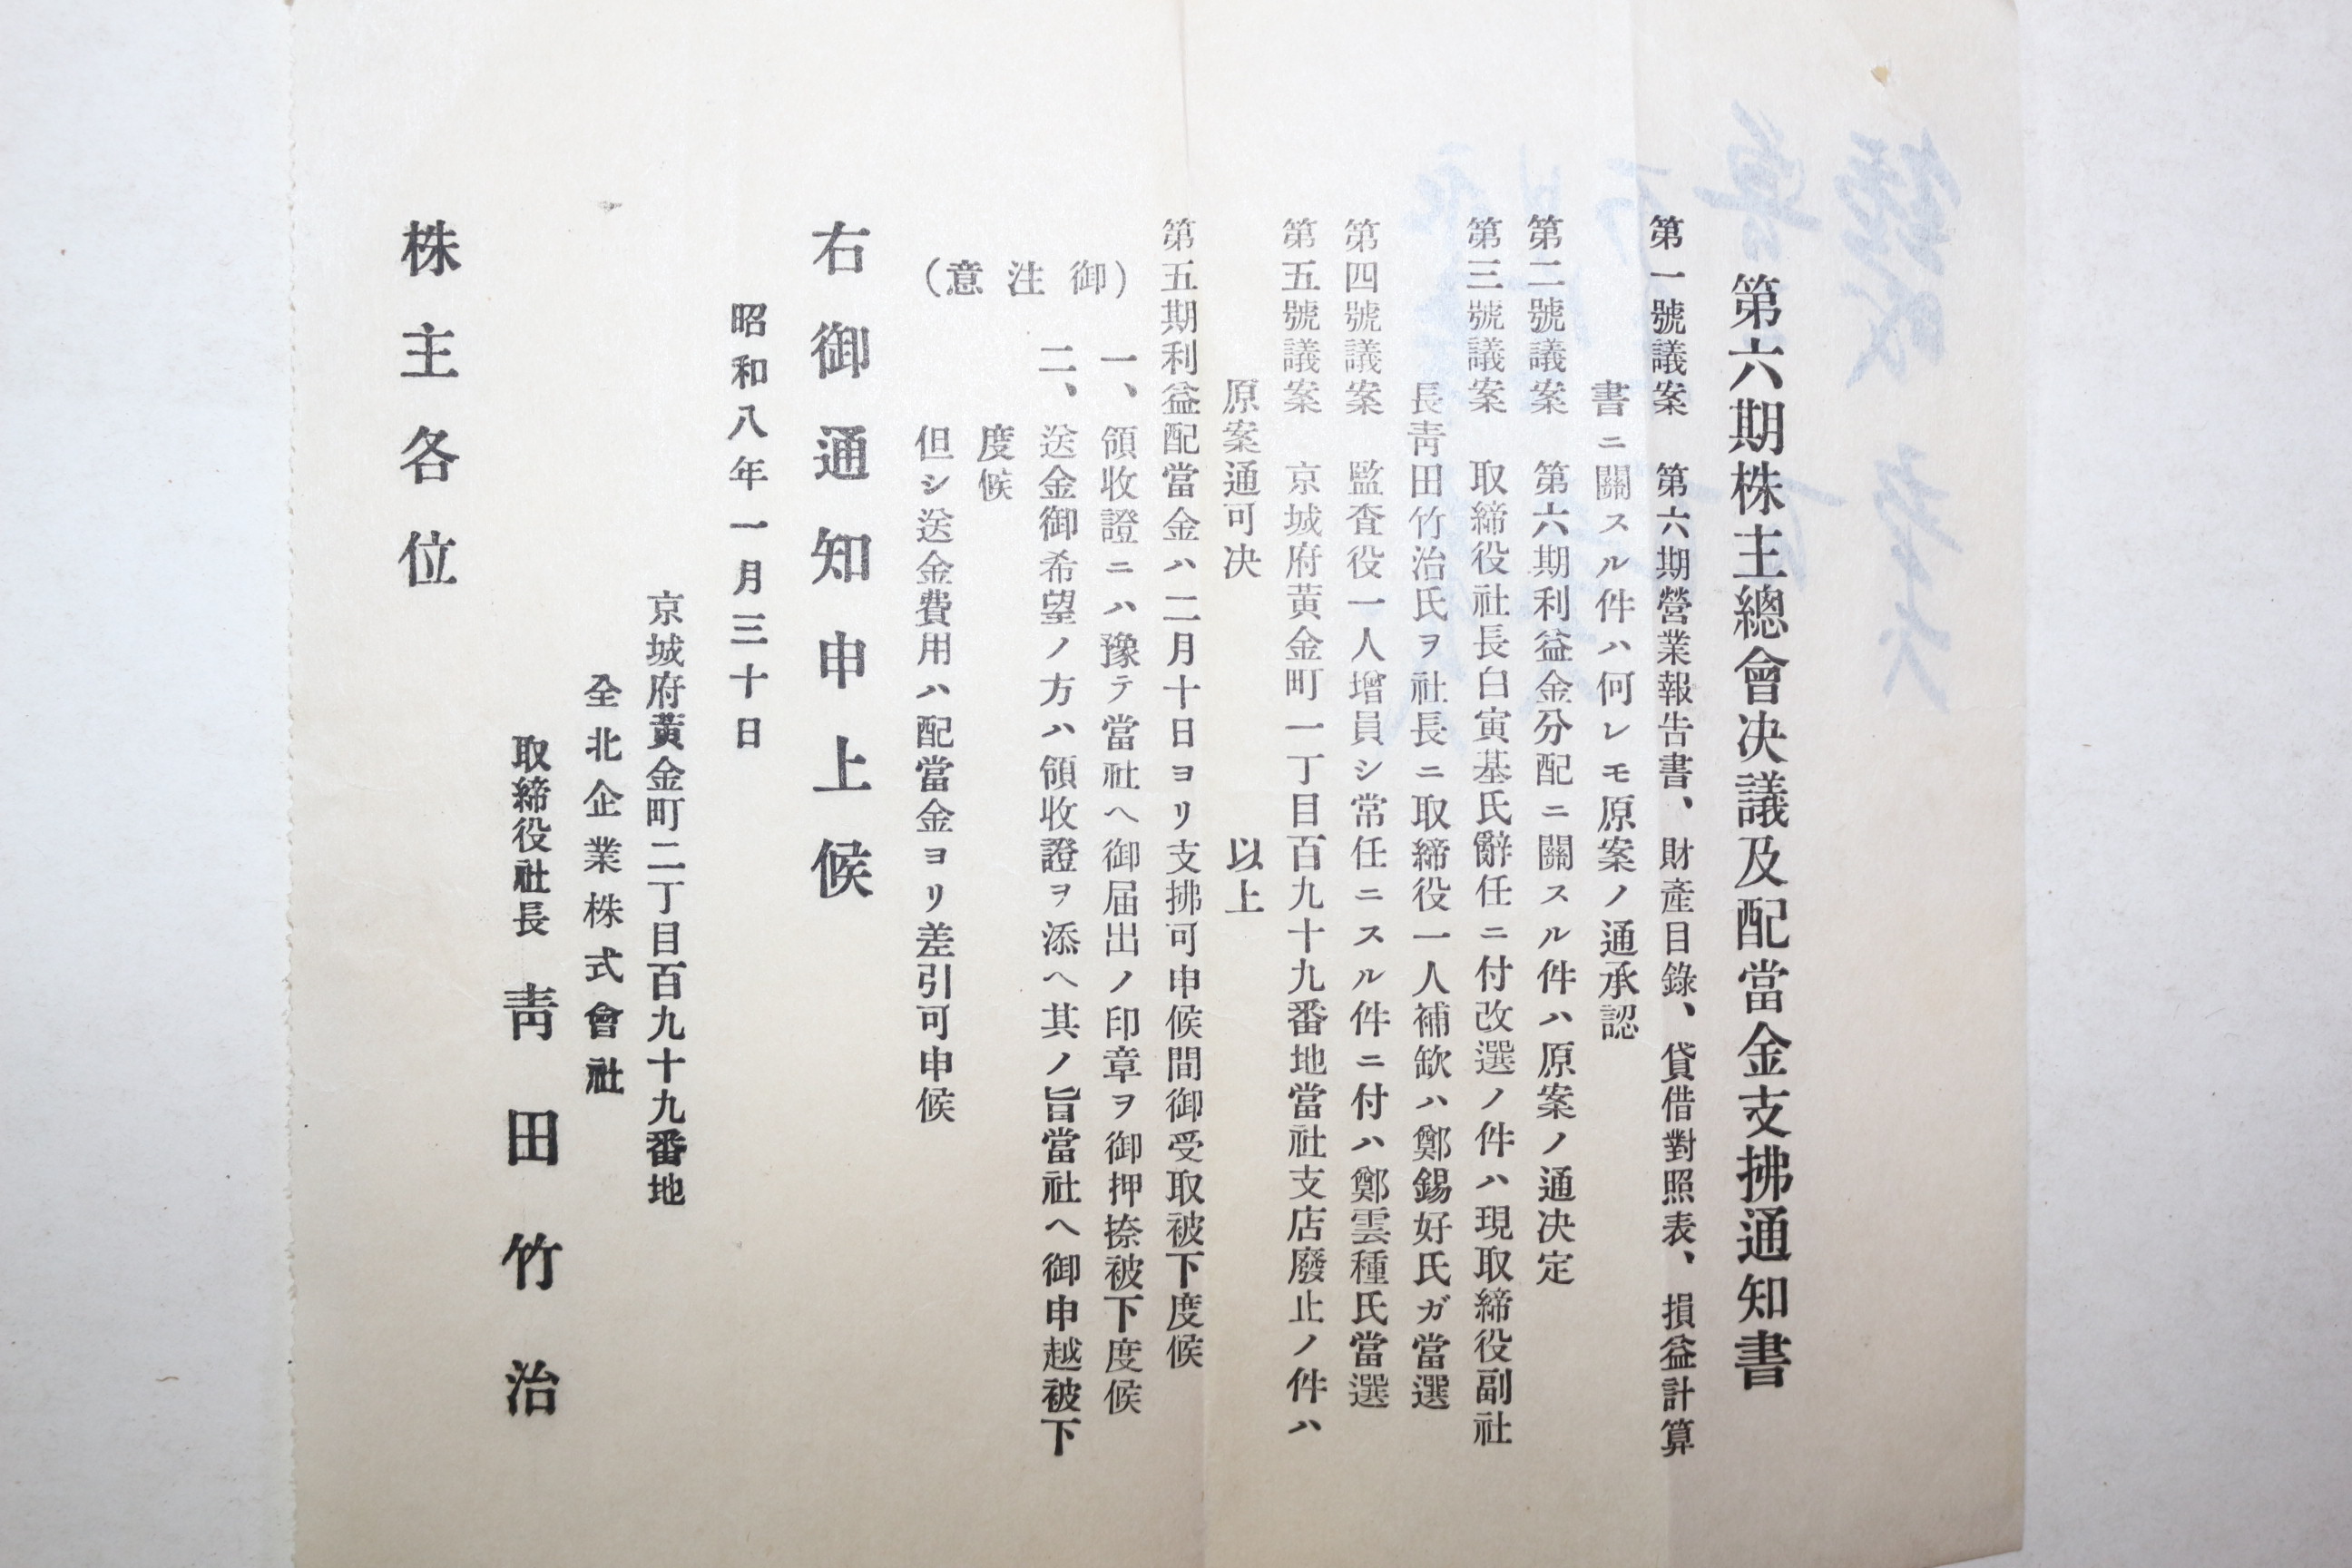 第六期株主總會決議及配當金支拂通知書
第一號議案　第六期營業報告書、財產目錄、貸借對照表、損益計算
書ニ關スル件ハ何レモ原案ノ通承認
第二號議案　第六期利益金分配ニ關スル件ハ原案ノ通決定
第三號議案　取締役社長白寅基氏辭任ニ付改選ノ件ハ現取締役副社
長靑田竹治氏ヲ社長ニ取締役一人補缺ハ鄭錫好氏ガ當選
第四號議案　監査役一人增員シ常任ニスル件ニ付ハ鄭雲種氏當選
第五號議案　京城府黃金町一丁目百九十九番地當社支店廢止ノ件ハ
原案通可決　以上
第五期利益配當金ハ二月十日ヨリ支拂可申候間御受取被下度候
（御注意）
一、領收證ニハ豫テ當社ヘ御届出ノ印章ヲ御押捺被下度候
二、送金御希望ノ方ハ領收證ヲ添ヘ其ノ旨當社ヘ御申越被下
度候
但シ送金費用ハ配當金ヨリ差引可申候
右御通知申上候
昭和八年一月三十日
京城府黃金町二丁目百九十九番地
全北企業株式會社
取締役社長　靑田竹治
株主各位